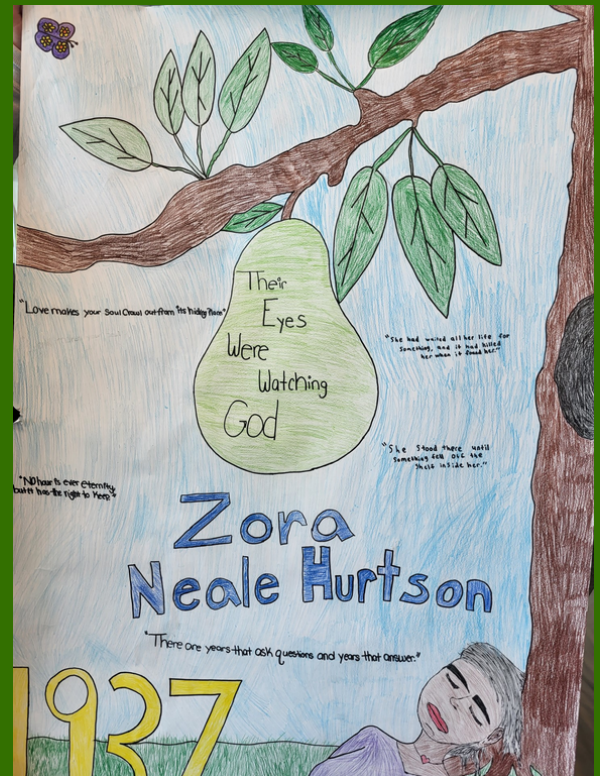 Their
Eyes
Were
Watching
God
"Love makes your Soul Crawl out from its hiding Place"
"She had waited all her life for
something, and it had killed
her when it found her."
"She Stood there until
something fell off the
Shelf inside her."
"NO hour is ever eternity,
but it has the right to Keep"
Zora
Neale Hurtson
"There are years that ask questions and years that answer."
1937